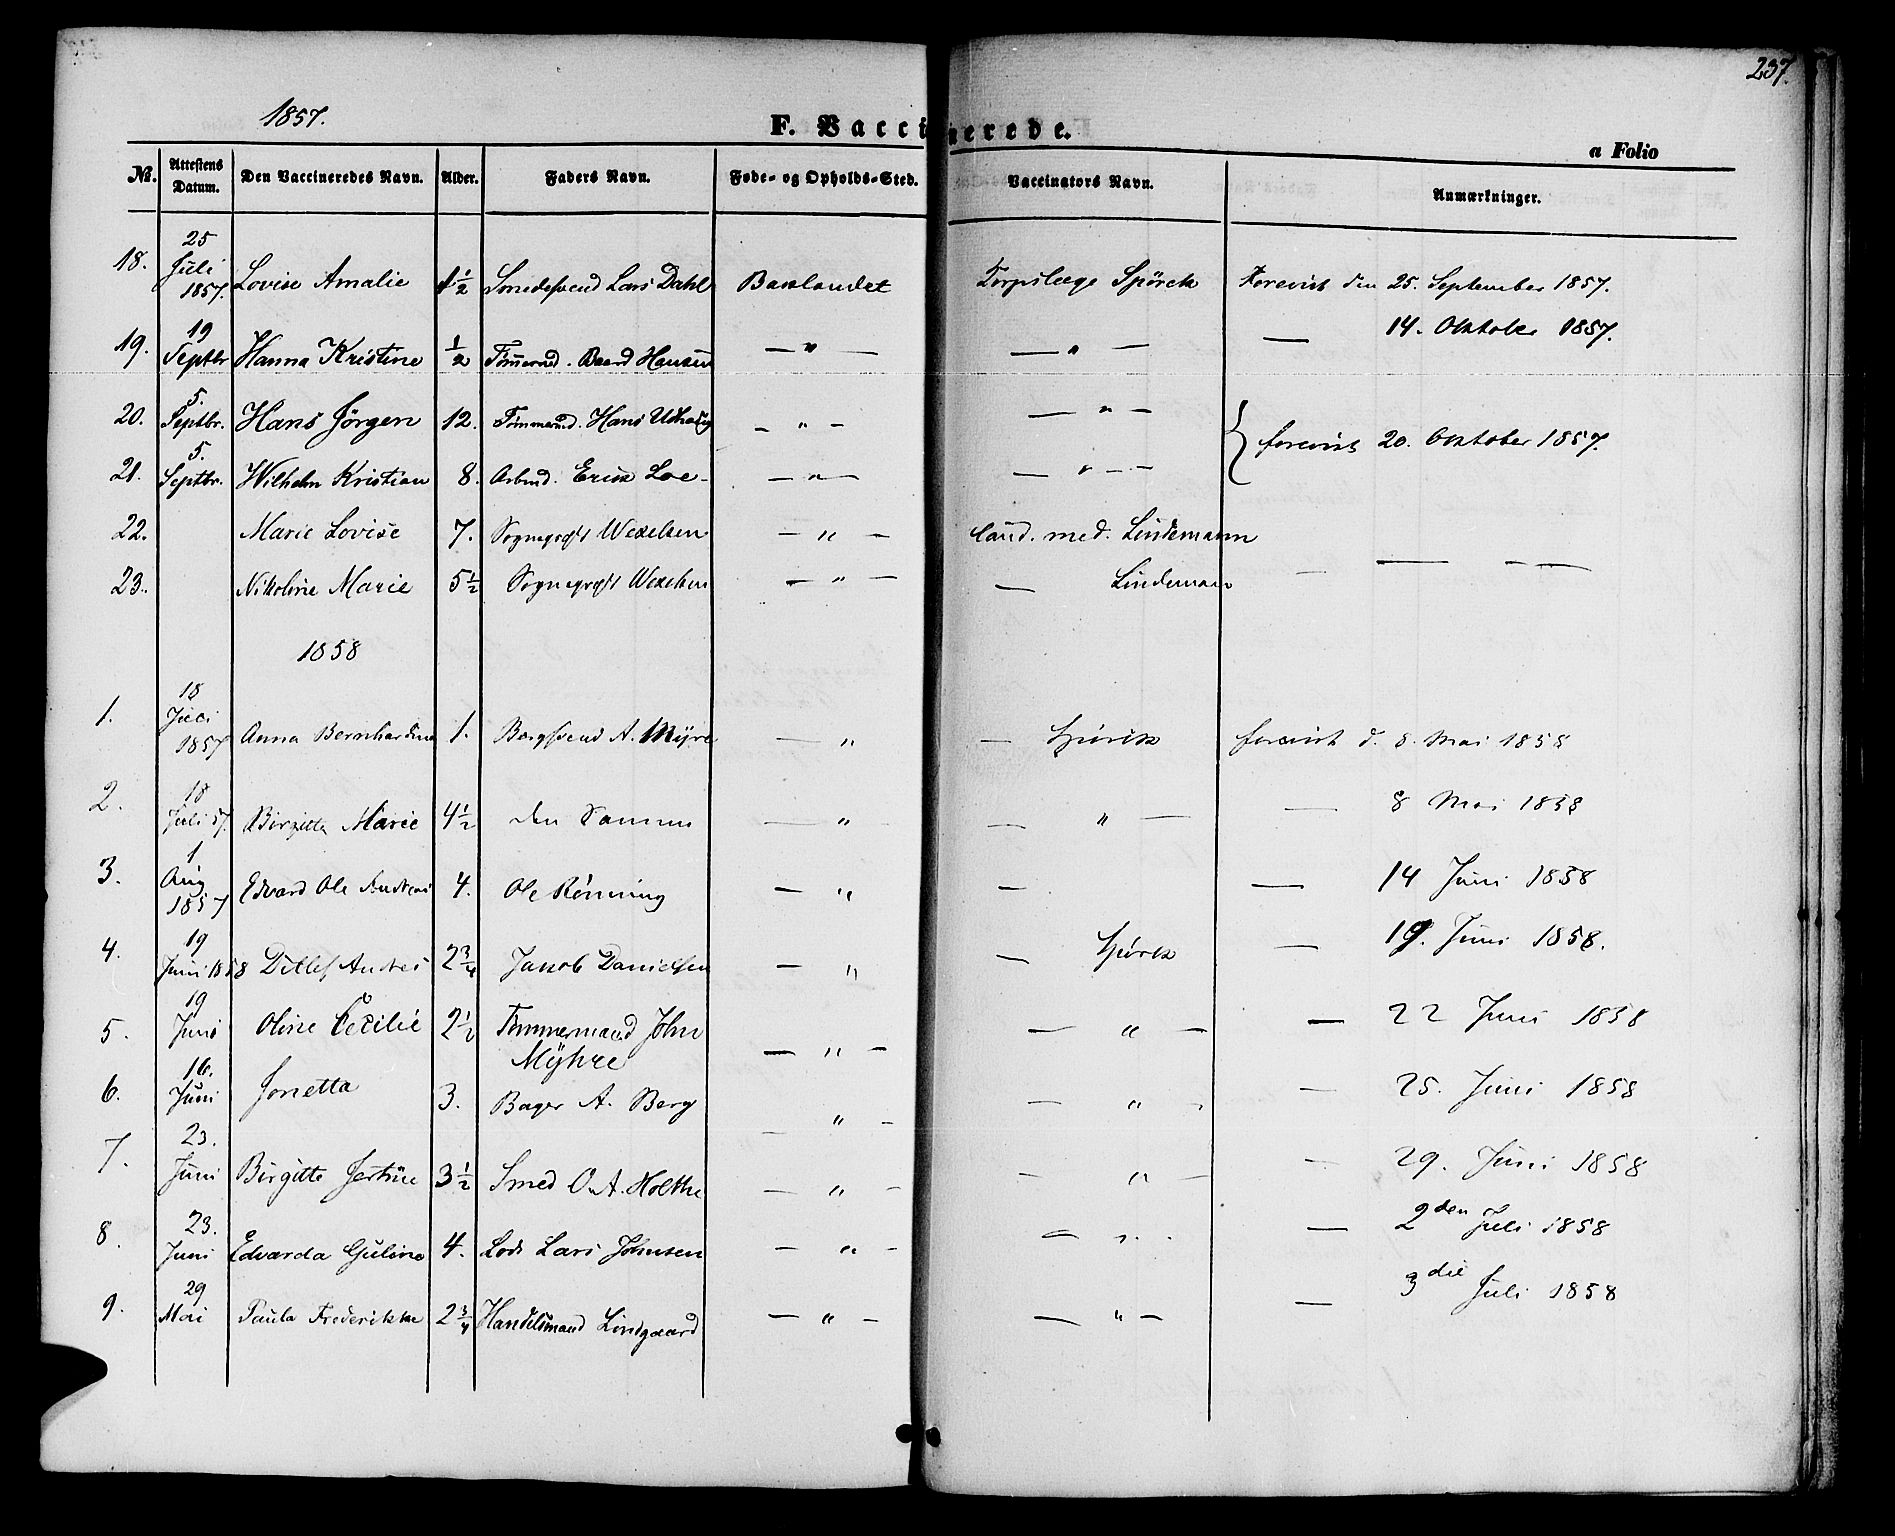 237.
1857.
F. Vaccinerede.
a Folio
No. Attestens Datum. Den Vaccineredes Navn. Alder. Faders Navn. Føde- og Opholds-Sted. Vaccinators Navn. Anmærkninger.
18. 25 Juli 1857. Lovise Amalie 1½ Lars Dahl Baklandet Spörck Forevist den 25. September 1857.
19. 19 Septbr Hanna Kristine ½ Baard Hansen — " — — " — — 14. Oktober 1857.
20. 5. Septbr. Hans Jörgen 12. Hans — " — — " —
forevist 20. Oktober 1857.
21. 5. Septbr. Wilhelm Kristian 8. Arbmd. Erik Loe — " — — " — —
22. Marie Lovise 7. Wexelsen — " — Cand. med. Lindemann
23. Nikoline Marie 5½ Wexelsen — " — — Lindemann — — — —
1858
1. 18 Juli 1857 Anna Bernhardine 1. A. Myre — " — Spörck forevist d. 8. Mai 1858
2. 18 Juli 57. Birgitte Marie 4½ den Samme — " — " — — 8 Mai 1858
3. 1 Aug 1857 Edvard Ole Andreas 4. Ole Rönning — " — — 14 Juni 1858
4. 19 Juni 1858 Ditlef Andreas 2¾ Jakob Danielsen — " — Spörck — 19. Juni 1858.
5. 19 Juni Oline Cecilie 2½ Tömmermand John — " — — 22 Juni 1858
Mÿhre — " —
6. 16. Juni Jonetta 3. Bager A. Berg — " — — " — — 25. Juni 1858
7. 23. Juni Birgitte 3½ Smed O. A. Holthe — " — — " — — 29. Juni 1858
8. 23. Juni Edvarda Guline 4. Lods Lars Johnsen — " — — " — — 2den Juli 1858
9. 29 Mai Paula Frederikke 2¾ Handelsmand Lindgaard — " — — " — — 3die Juli 1858